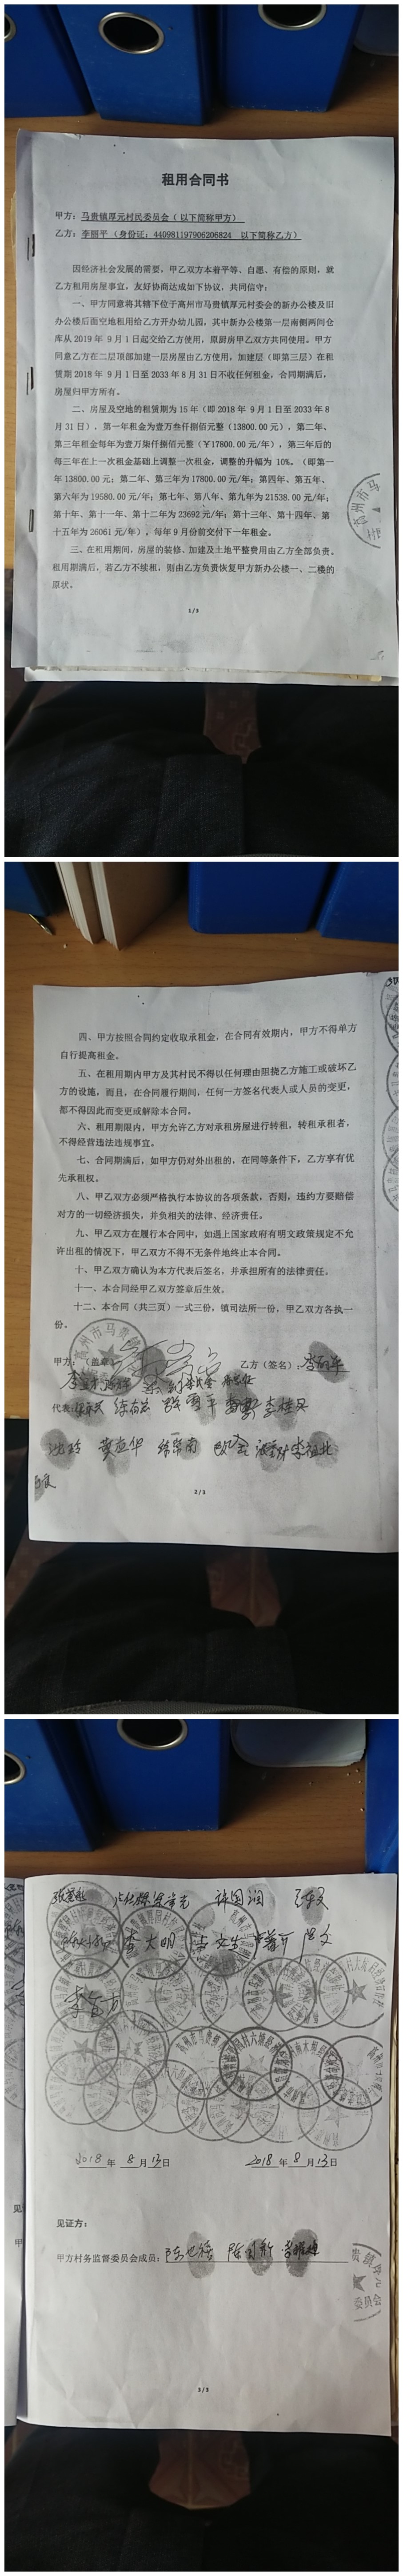 租用合同书
甲方：马贵镇厚元村民委员会（以下简称甲方）
乙方：李丽平（身份证：440981197906206824 以下简称乙方）
因经济社会发展的需要，甲乙双方本着平等、自愿、有偿的原则，就
乙方租用房屋事宜，友好协商达成如下协议，共同信守：
一、甲方同意将其辖下位于高州市马贵镇厚元村委会的新办公楼及旧
办公楼后面空地租用给乙方开办幼儿园，其中新办公楼第一层南侧两间仓
库从 2019 年 9 月 1 日起交给乙方使用，原厨房甲乙双方共同使用。甲方
同意乙方在二层顶部加建一层房屋由乙方使用，加建层（即第三层）在租
赁期 2018 年 9 月 1 日至 2033 年 8 月 31 日不收任何租金，合同期满后，
房屋归甲方所有。
二、房屋及空地的租赁期为 15 年（即 2018 年 9 月 1 日至 2033 年 8
月 31 日）、第一年租金为壹万叁仟捌佰元整（13800.00 元），第二年、
第三年租金每年为壹万柒仟捌佰元整（￥17800.00 元/年），第三年后的
每三年在上一次租金基础上调整一次租金，调整的升幅为 10%。（即第一
年 13800.00 元；第二年、第三年为 17800.00 元/年；第四年、第五年、
第六年为 19580.00 元/年；第七年、第八年、第九年为 21538.00 元/年；
第十年、第十一年、第十二年为 23692 元/年；第十三年、第十四年、第
十五年为 26061 元/年），每年 9 月份前交付下一年租金。
三、在租用期间，房屋的装修、加建及土地平整费用由乙方全部负责。
租用期满后，若乙方不续租，则由乙方负责恢复甲方新办公楼一、二楼的
原状。
高州市马
1/3
四、甲方按照合同约定收取承租金，在合同有效期内，甲方不得单方
自行提高租金。
五、在租用期内甲方及其村民不得以任何理由阻挠乙方施工或破坏乙
方的设施，而且，在合同履行期间，任何一方签名代表人或人员的变更，
都不得因此而变更或解除本合同。
六、租用期限内，甲方允许乙方对承租房屋进行转租，转租承租者，
不得经营违法违规事宜。
七、合同期满后，如甲方仍对外出租的，在同等条件下，乙方享有优
先承租权。
八、甲乙双方必须严格执行本协议的各项条款，否则，违约方要赔偿
对方的一切经济损失，并负相关的法律、经济责任。
九、甲乙双方在履行本合同中，如遇上国家政府有明文政策规定不允
许出租的情况下，甲乙双方不得不无条件地终止本合同。
十、甲乙双方确认为本方代表后签名，并承担所有的法律责任。
十一、本合同经甲乙双方签章后生效。
十二、本合同（共三页）一式三份，镇司法所一份，甲乙双方各执一
份。
高州市马贵镇
甲方：（盖章） 乙方（签名）：李丽平
代表：
2/3
李大明
2018 年 8 月 13 日 2018 年 8 月 13 日
见证方：
甲方村务监督委员会成员：
贵镇厚元
委员会
3/3